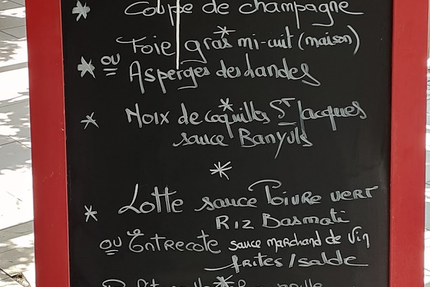 * Coupe de champagne
*
Foie gras mi-cuit (maison)
* ou Asperges des landes
*
* Noix de coquilles St Jacques
sauce Banyuls
*
* Lotte sauce Poivre vert
Riz Basmati
ou Entrecote sauce marchand de Vin
frites/salade
*